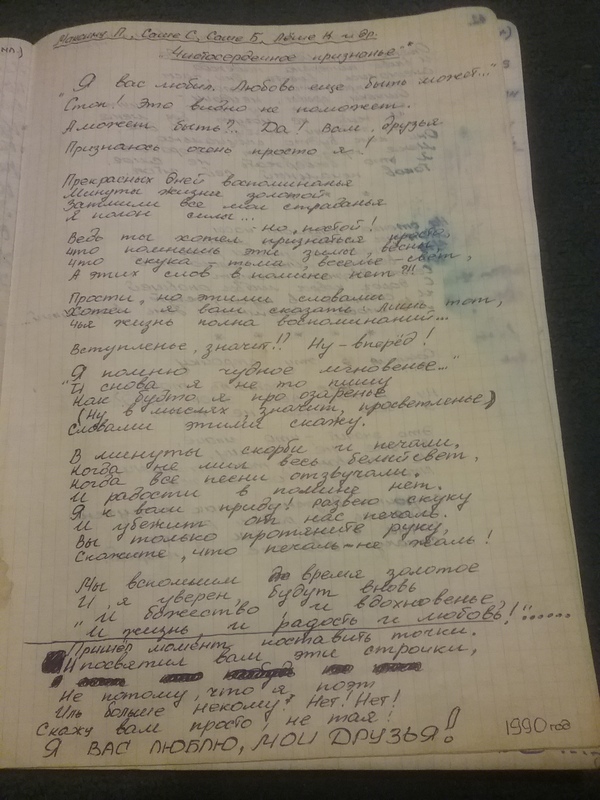 Саше С, Саше Б, и др.
"Чистосердечное признанье"
"Я вас любил. Любовь еще быть может..."
Стоп! Это видно не поможет.
А может быть?.. Да! Вам, друзья
Признаюсь очень просто я!
Прекрасных дней воспоминанья
Минуты жизни золотой
Затмили все мои страданья
Я полон силы...
но, постой!
Ведь ты хотел признаться просто,
Что помнишь эти зимы, вёсны,
Что скука - тьма, веселье - свет,
А этих слов в помине нет?!!
Прости, но этими словами
Хотел я вам сказать: лишь тот,
Чья жизнь полна воспоминаний...
Вступленье, значит!? Ну - вперёд!
"Я помню чудное мгновенье..."
И снова я не то пишу
Как будто я про озаренье
(Ну, в мыслях, значит, просветленье)
Словами этими скажу.
В минуты скорби и печали,
Когда не мил весь белый свет,
Когда все песни отзвучали.
И радости в помине нет.
Я к вам приду! Развею скуку
И убежит от нас печаль.
Вы только протяните руку,
Скажите, что печаль - не жаль!
Мы вспомним время золотое
И, я уверен, будут вновь
"И божество и вдохновенье,
И жизнь, и радость и любовь!"......
Пришёл момент поставить точки.
И посвятил вам эти строчки,
Не потому, что я поэт
Иль больше некому? Нет! Нет!
Скажу вам просто, не тая!
Я ВАС ЛЮБЛЮ, МОИ ДРУЗЬЯ!
1990 год